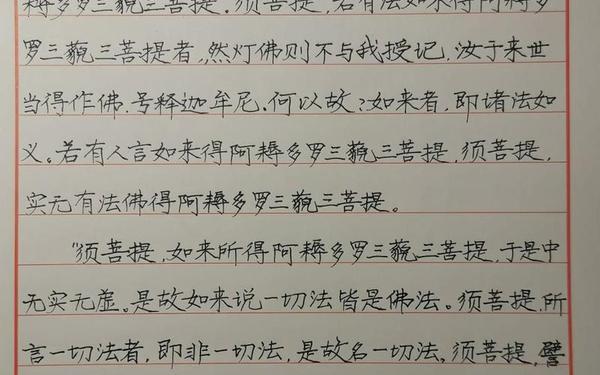 耨多罗三藐三菩提。须菩提,若有法如来得阿耨多
罗三藐三菩提者,然灯佛则不与我授记,汝于来世
当得作佛,号释迦牟尼。何以故?如来者,即诸法如
义。若有人言如来得阿耨多罗三藐三菩提,须菩提,
实无有法佛得阿耨多罗三藐三菩提。
"须菩提,如来所得阿耨多罗三藐三菩提,于是中
无实无虚。是故如来说一切法皆是佛法。须菩提,所
言一切法者,即非一切法,是故名一切法。须菩提,譬